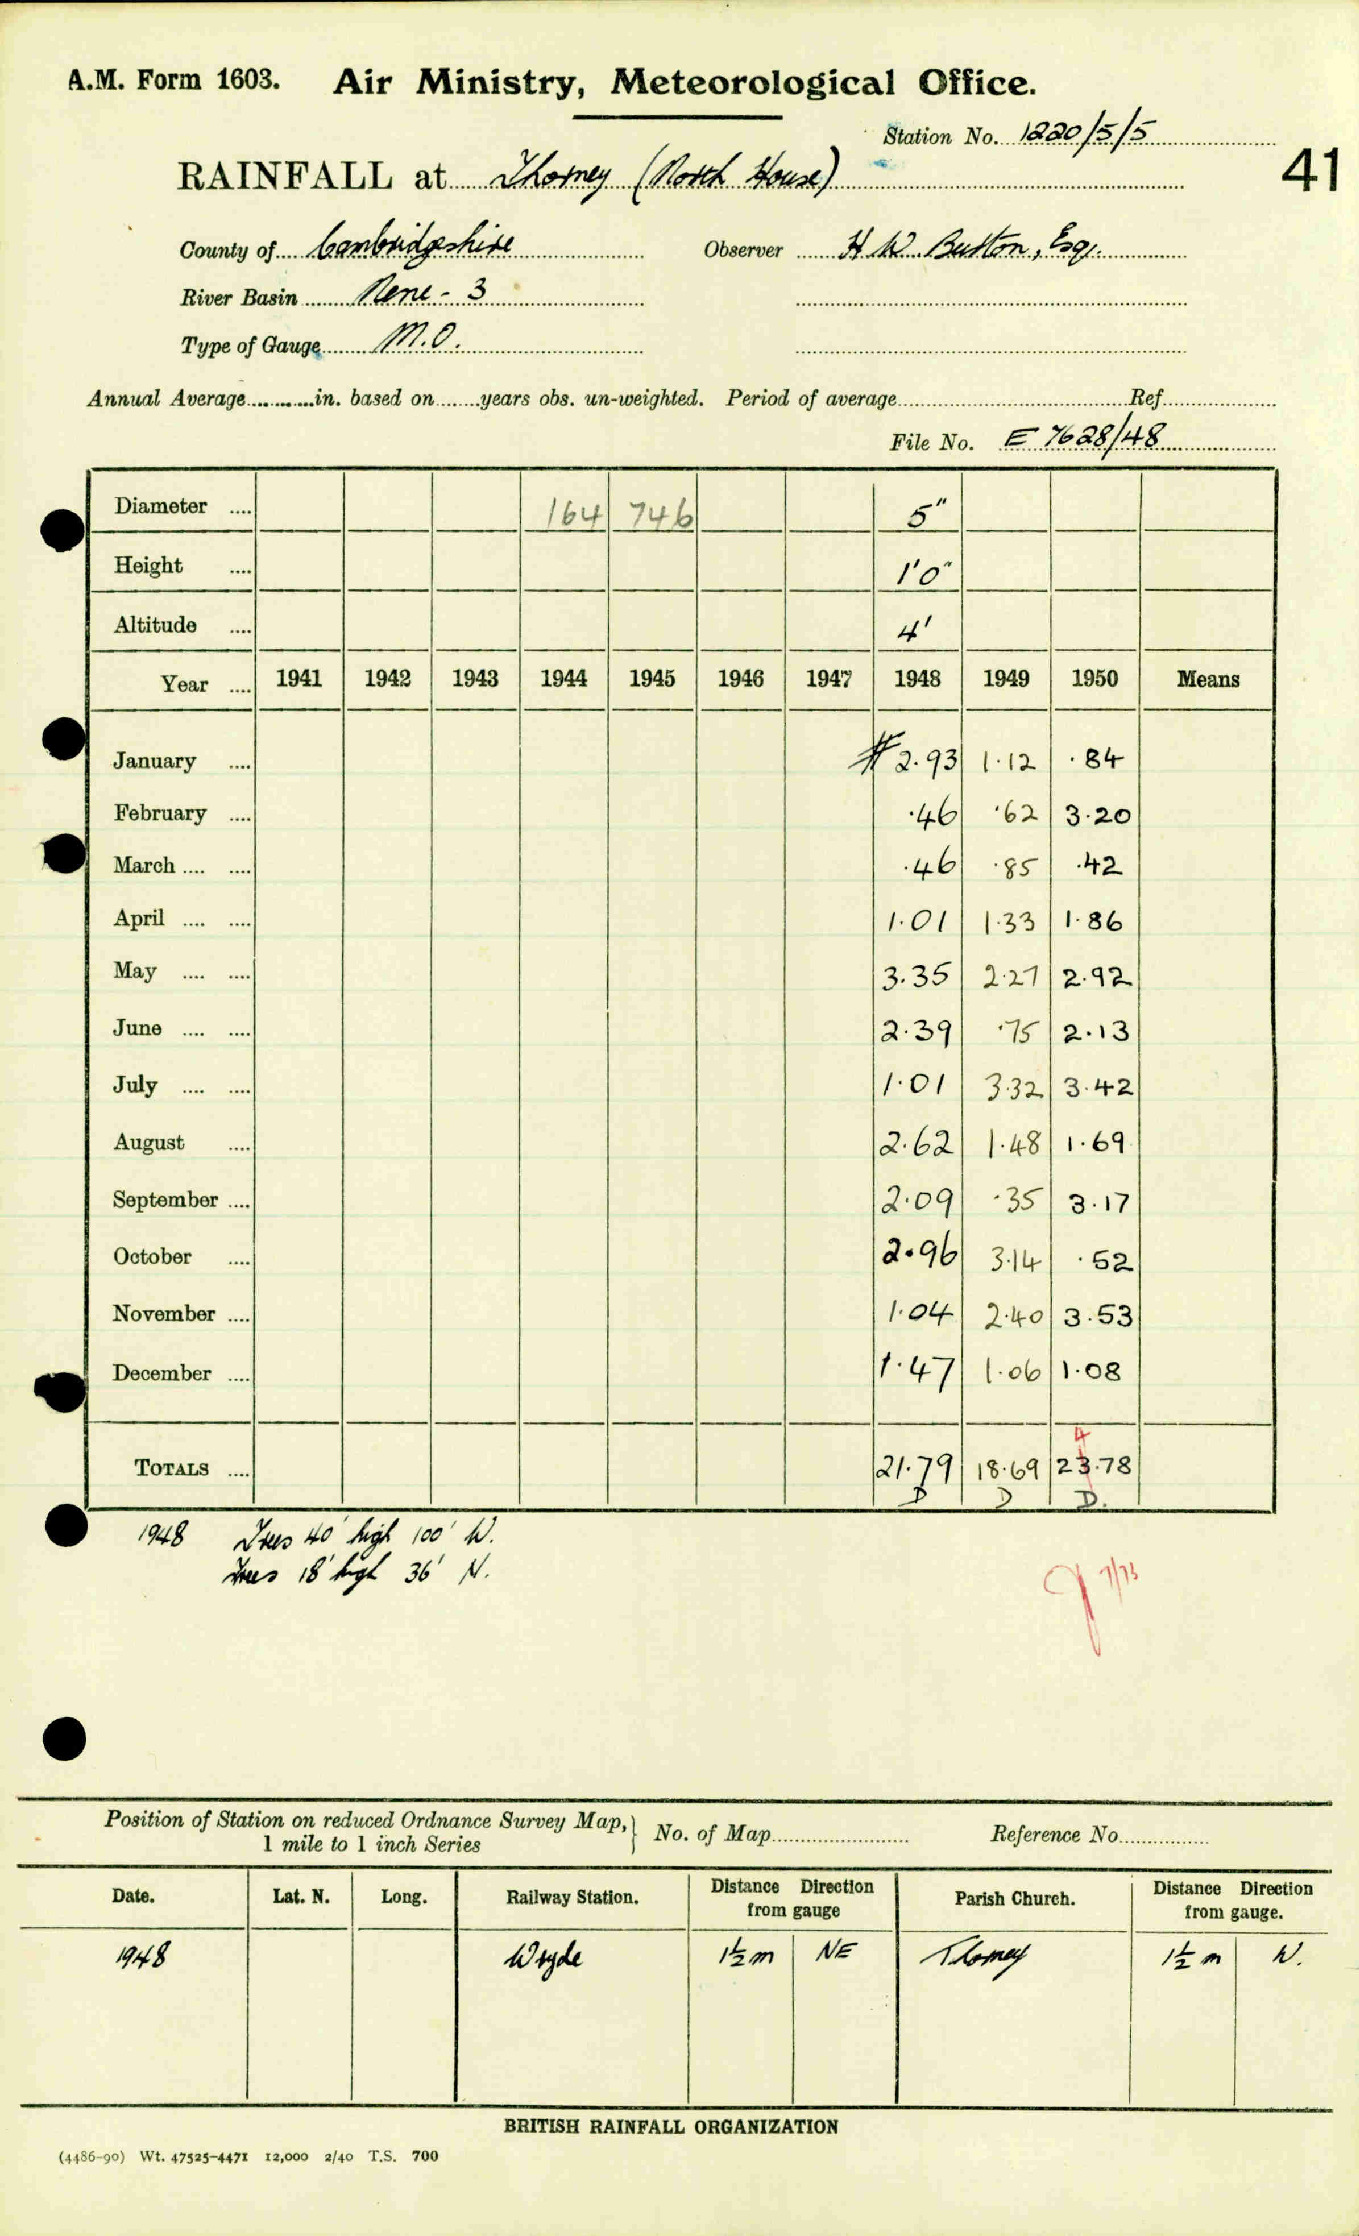 A.M. Form 1603. Air Ministry, Meteorological Office.
Station No. 1220/5/5
41
RAINFALL at Thorney (North House)
County of Cambridgeshire Observer H W. Buston, Esq.
River Basin Nene - 3
Type of Gauge M.O.
Annual Average............in. based on.......years obs. un-weighted. Period of average Ref.
File No. E 7628/48
Diameter .... 164 746 5"
Height .... 1'0"
Altitude .... 4'
Year .... 1941 1942 1943 1944 1945 1946 1947 1948 1949 1950 Means
January .... # 2.93 1.12 .84
February .... .46 .62 3.20
March .... .... .46 .85 .42
April .... .... 1.01 1.33 1.86
May .... .... 3.35 2.27 2.92
June .... .... 2.39 .75 2.13
July .... .... 1.01 3.32 3.42
August .... 2.62 1.48 1.69
September .... 2.09 .35 3.17
October .... 2.96 3.14 .52
November .... 1.04 2.40 3.53
December .... 1.47 1.06 1.08
4
TOTALS .... 21.79 18.69 23.78
D D D.
1948 Trees 40' high 100' W.
Trees 18' high 36' N.
7/73
Position of Station on reduced Ordnance Survey Map, } No. of Map Reference No.
1 mile to 1 inch Series
Date. Lat. N. Long. Railway Station. Distance Direction from gauge Parish Church. Distance Direction from gauge.
1948 Wryde 1½ m NE Thorney 1½ m W.
BRITISH RAINFALL ORGANIZATION
(4486-90) Wt. 47525-4471 12,000 2/40 T.S. 700